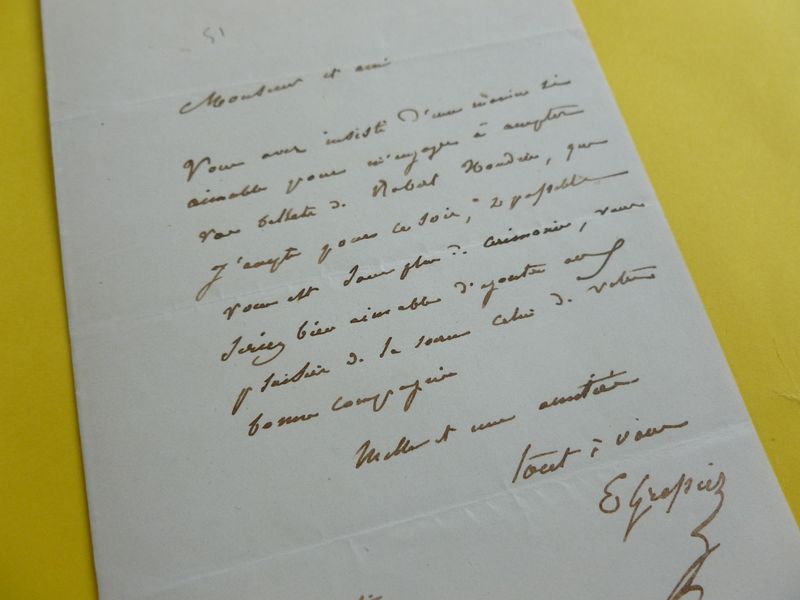 51
Monsieur et ami
Vous avez insisté d'une manière si
aimable pour m'engager à accepter
vos billets de Robert Houdin, que
j'accepte pour ce soir, si possible
vous est sans plus de cérémonie, vous
seriez bien aimable d'ajouter au
plaisir de la soirée celui de votre
bonne compagnie
Mille et une amitiés
tout à vous
E